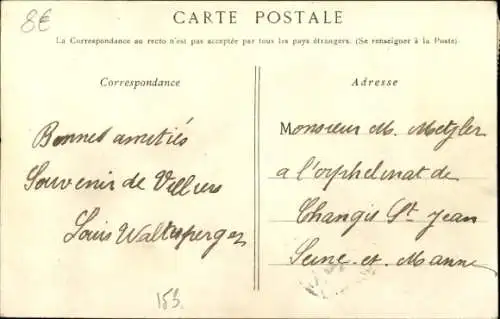 8€
CARTE POSTALE
La Correspondance au recto n'est pas acceptée par tous les pays étrangers. (Se renseigner à la Poste).
Correspondance
Bonnes amitiés
Souvenir de Villiers
Louis Waltisperger
153
Adresse
Monsieur M. Metzler
a l'orphelinat de
Changis St Jean
Seine-et-Marne